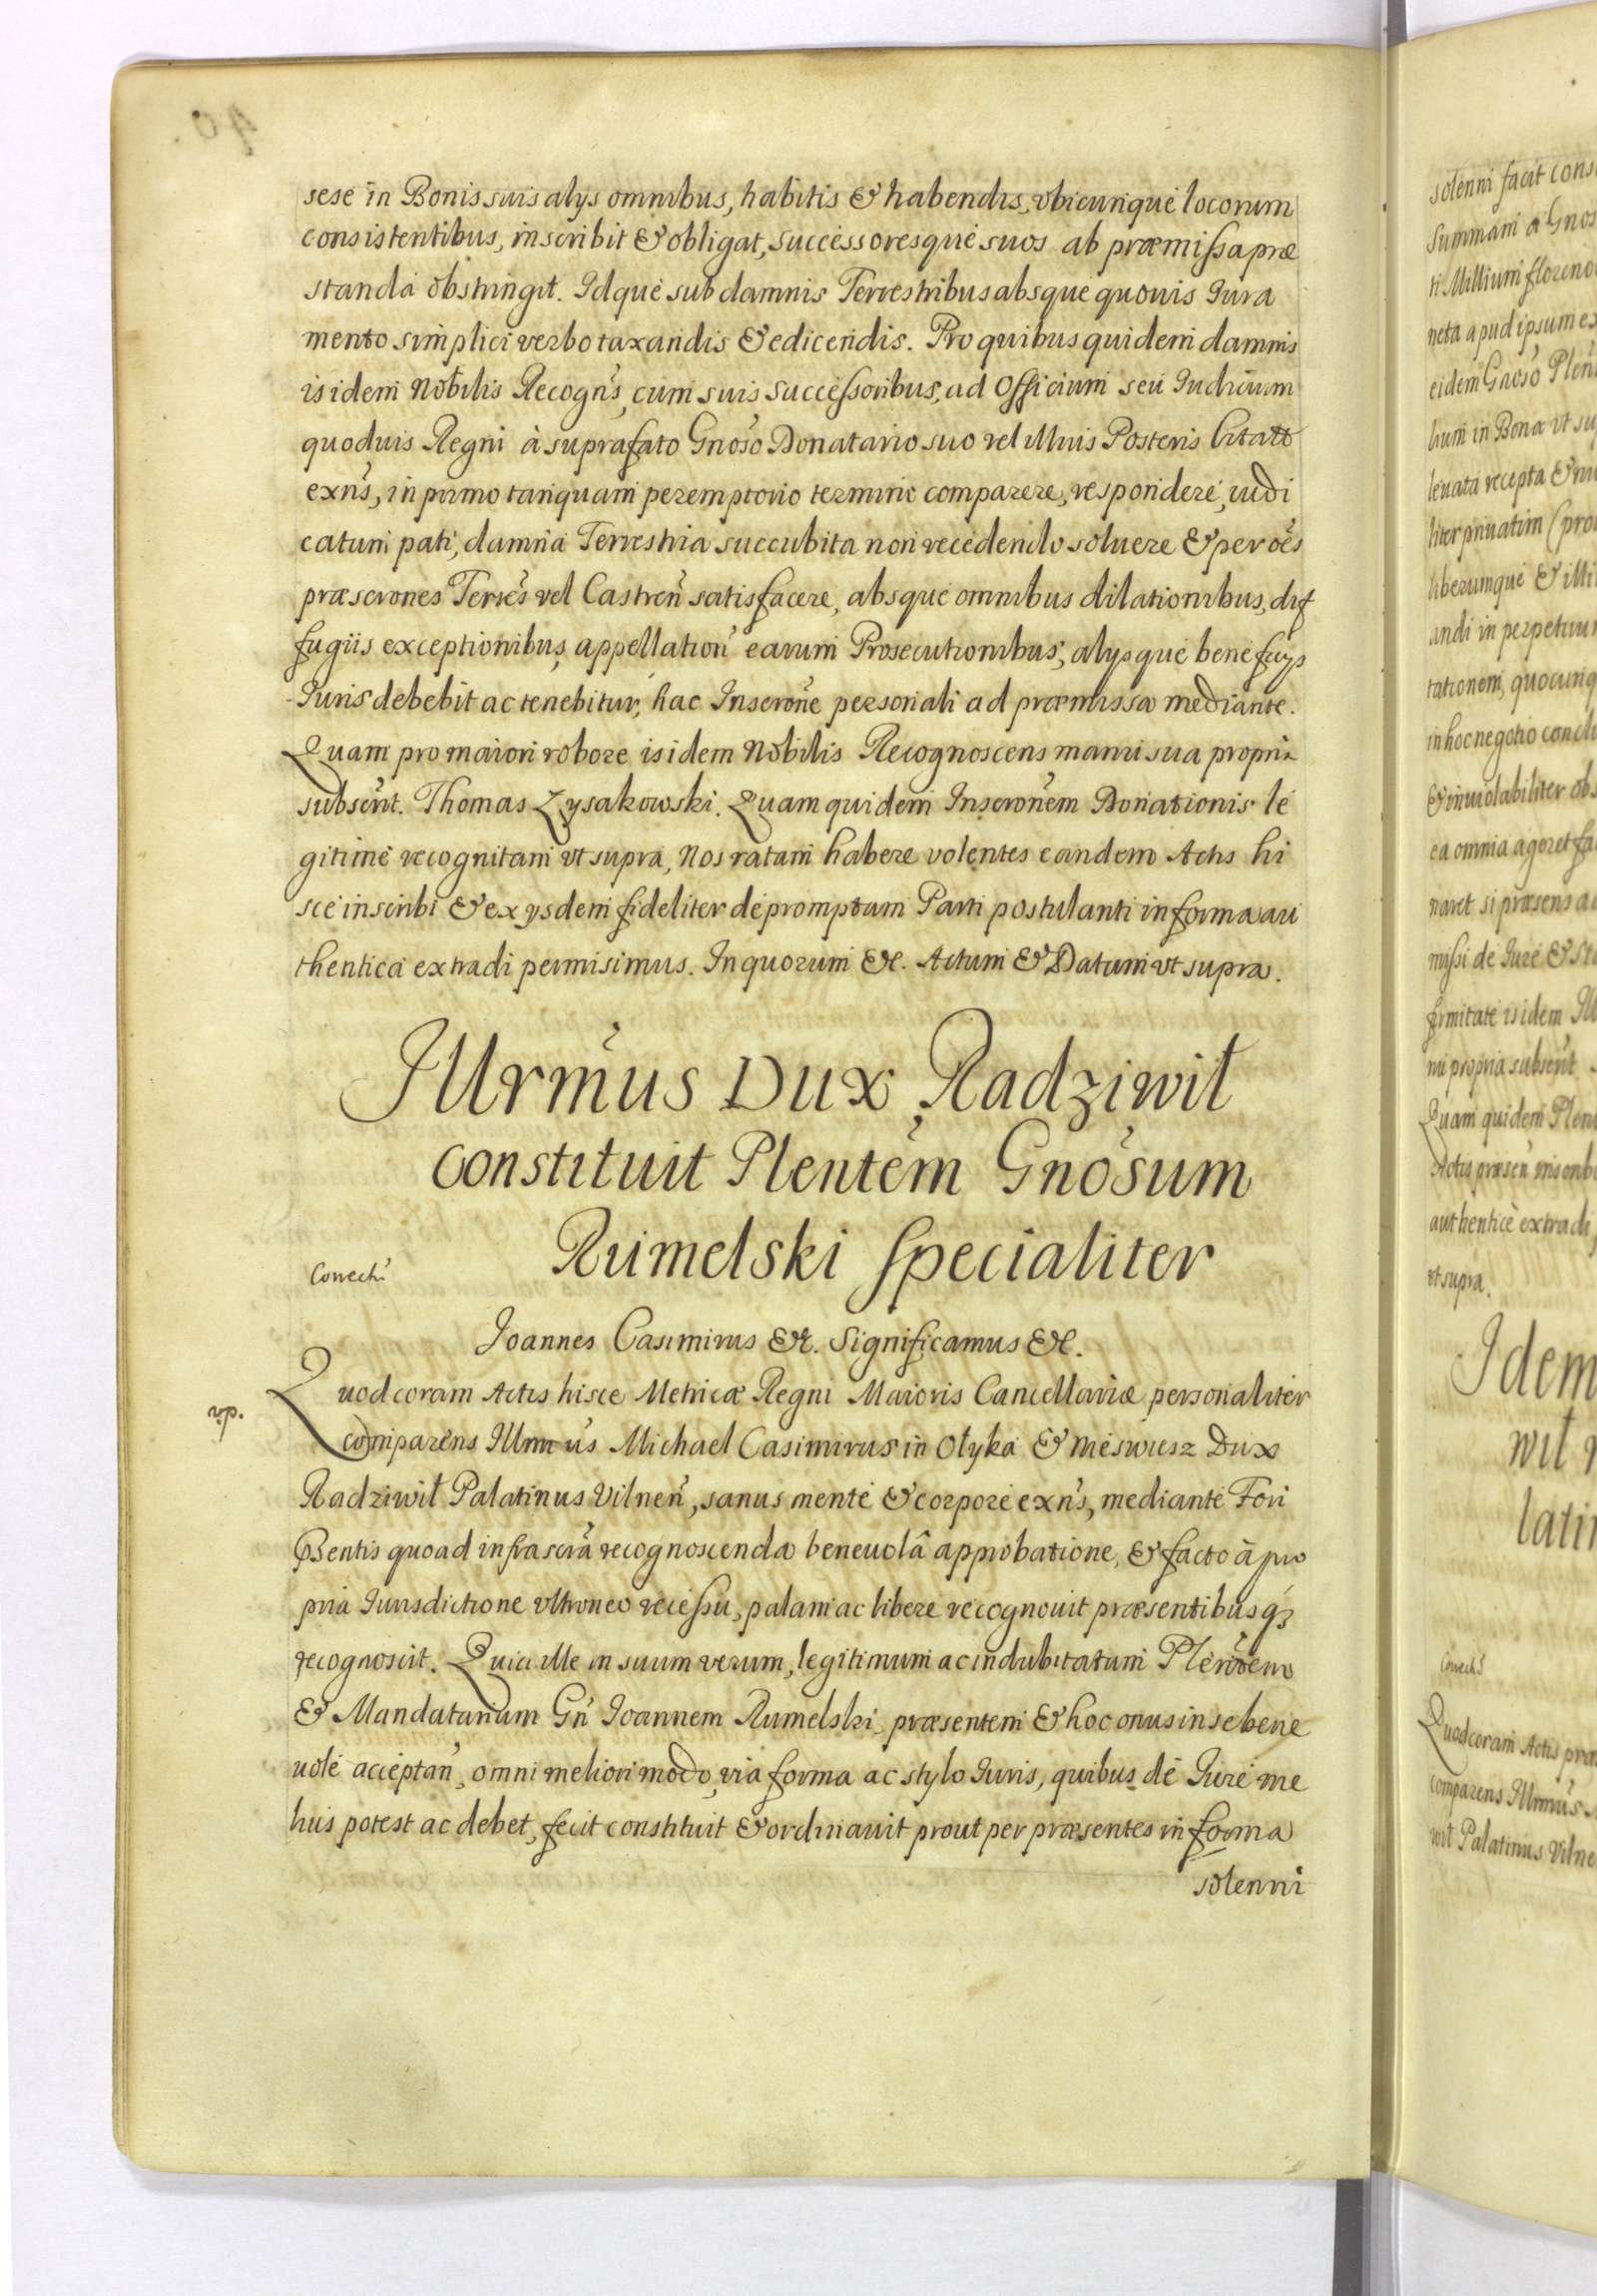 sese in Bonis suis alys omnibus, habitis & habendis, vbicunque locorum
consistentibus, inscribit & obligat, successoresque suos ab præmissa præ
standa obstringit. Idque sub damnis Terrestribus absque quouis Iura
mento simplici verbo taxandis & edicendis. Pro quibus quidem damnis
isidem Nobilis Recogns, cum suis Successoribus, ad Officium seu Iudicium
quoduis Regni à suprafato Gnoso Donatario suo vel illius Posteris Citatt
exns, in primo tanquam peremptorio termino comparere, respondere, iudi
catum pati, damna Terrestria succubita non recedendo soluere & per oes
præscrones Terres vel Castren satisfacere, absque omnibus dilationibus, dif
fugiis exceptionibus, appellation earum Prosecutionibus, alysque beneficys
Iuris debebit ac tenebitur, hac Inscrone personali ad præmissa mediante.
Quam pro maiori robore isidem Nobilis Recognoscens manu sua propria
subscrit. Thomas Zysakowski. Quam quidem Inscronem Donationis le
gitime recognitam vt supra, Nos ratam habere volentes eandem Actis hi
sce inscribi & ex ysdem fideliter depromptam Parti postulanti in forma au
thentica extradi permisimus. In quorum &c. Actum & Datum vt supra.
Illrmus Dux Radziwił
constituit Plentem Gnosum
Rumelski specialiter
Correct.
Ioannes Casimirus &c. Significamus &c.
Quod coram Actis hisce Metricæ Regni Maioris Cancellariæ personaliter
vp.
comparens Illmus Michael Casimirus in Ołyka & Nieswiesz Dux
Radziwił Palatinus Vilnen, sanus mente & corpore exns, mediante Fori
Psentis quoad infrascra recognoscenda beneuolâ approbatione, & facto à pro
pria Iurisdictione vltroneo recessu, palam ac libere recognouit præsentibusq3
recognoscit. Quia ille in suum verum, legitimum ac indubitatum Plentem
& Mandatarium Gn Ioannem Rumelski, præsentem & hoc onus in se bene
uole acceptan, omni meliori modo, via forma ac stylo Iuris, quibus de Iure me
lius potest ac debet, fecit constituit & ordinauit prout per præsentes in forma
solenni
solenni facit cons
Summam a Gnos
ti Millium floreno
neta apud ipsum ex
eidem Gnoso Plen
lium in Bona vt su
leuata recepta & nu
liter priuatim (pro
liberumque & illi
andi in perpetuu
tationem, quocunq
in hoc negotio conclu
& inuiolabiliter obs
ea omnia ageret fa
naret si præsens ad
missi de Iure & Sta
firmitate isidem Ill
nu propria subscrit
Quam quidem Plen
Actis præsen
authentice extradi
vt supra.
Idem
wił
latin
Correct.
Quod coram Actis præ
comparens Illmus
wił Palatinus Vilne